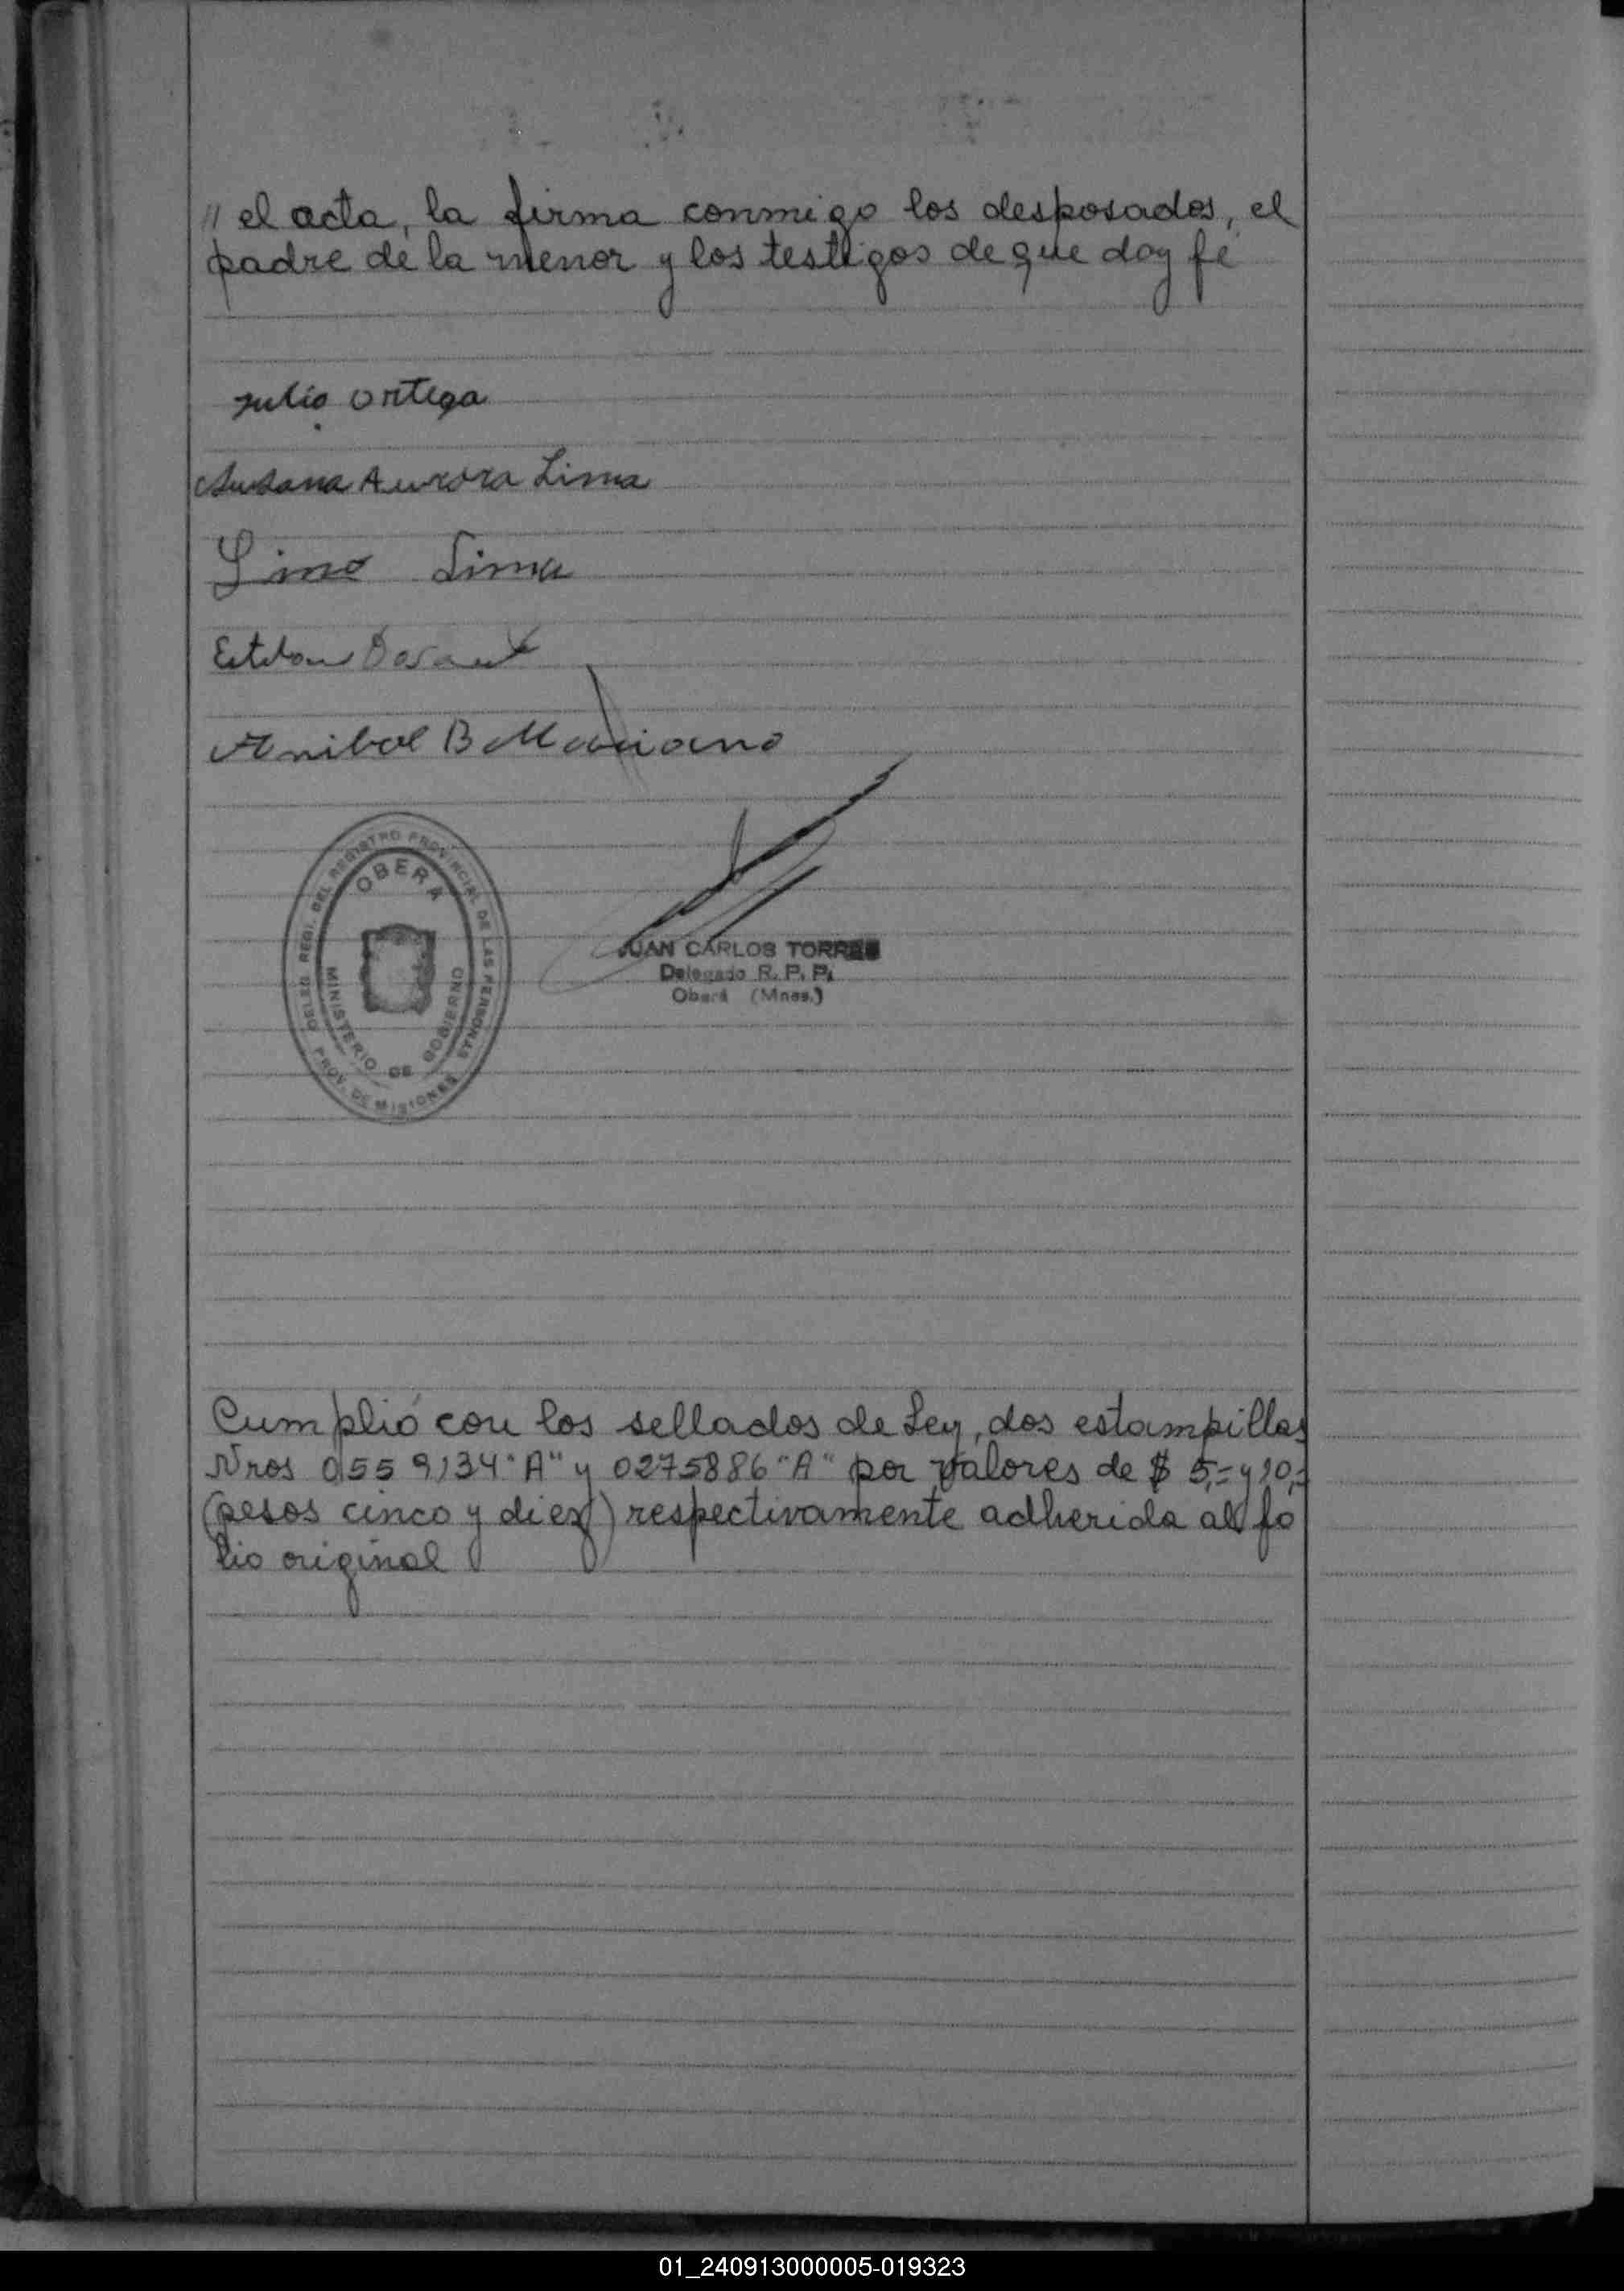 // el acta, la firma conmigo los desposados, el
padre de la menor y los testigos de que doy fé
Julio Ortega
Susana Aurora Lima
Lino Lima
Esteban
Anibal B Mariano
DELEG. REGI. DEL REGISTRO PROVINCIAL DE LAS PERSONAS
OBERA
MINISTERIO DE GOBIERNO
PROV. DE MISIONES
JUAN CARLOS TORRES
Delegado R. P. P.
Oberá (Mnes.)
Cumplió con los sellados de Ley, dos estampillas
Nros 0559134 "A" y 0275886 "A" por valores de $ 5,= y 10,=
(pesos cinco y diez) respectivamente adherida al fo
lio original
01_240913000005-019323